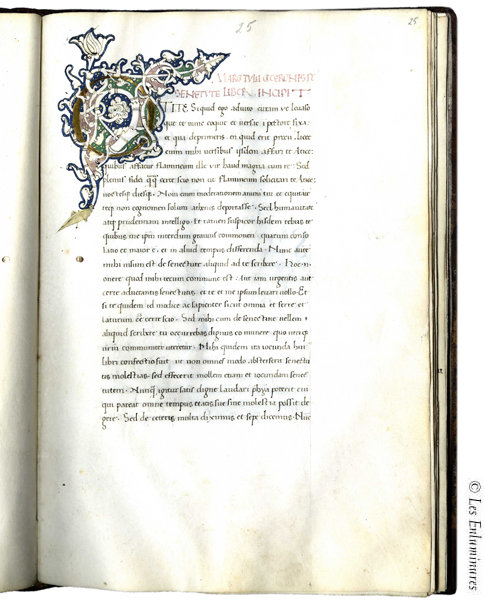 25
25
M ARCI TVLII CICERONIS D
SENETVTE LIBER INCIPIT
TITE Si quid ego adiuto curam ve levaso
que te nunc coquit et versat i pectore fixa
et qua deprimeris en quid erit precii licet
eum mihi versibus affari te Atice
quibus affatur flamineum ille vir haud magna cum re Sed
plenus fidei certe scio non ut flamineum solicitari te Atice
noctesque diesque Novi enim moderationem animi tui et equitatem
teque non cognomen solum athenis deportasse Sed humanitatem
atque prudentiam intelligo Et tamen suspicor hisdem rebus te
quibus me ipsum interdum gravius commoveri quarum conso
latio et maior e et in aliud tempus differenda Nunc autem
mihi visum est de senectute aliquid ad te scribere Hoc
onere quod mihi tecum commune est Aut iam urgentis aut
certe adventantis senectutis et te et me ipsum levari volo Et
si te quidem id modice ac sapienter sicut omnia et ferre et
laturum certe scio Sed mihi cum de senectute vellem
aliquid scribere tu occurrebas dignus eo munere quo uterque
nrm communiter uteretur Mihi quidem ita iocunda huius
libri confectio fuit ut non omnes modo absterserit senectu
tis molestias sed effecerit mollem etiam et iocundam senec
tutem Nunquam igitur satis digne laudari phya poterit cui
qui pareat omne tempus etatis sue sine molestia possit de
gere Sed de ceteris multa diximus et sepe dicemus Nuc
© Les Enluminures